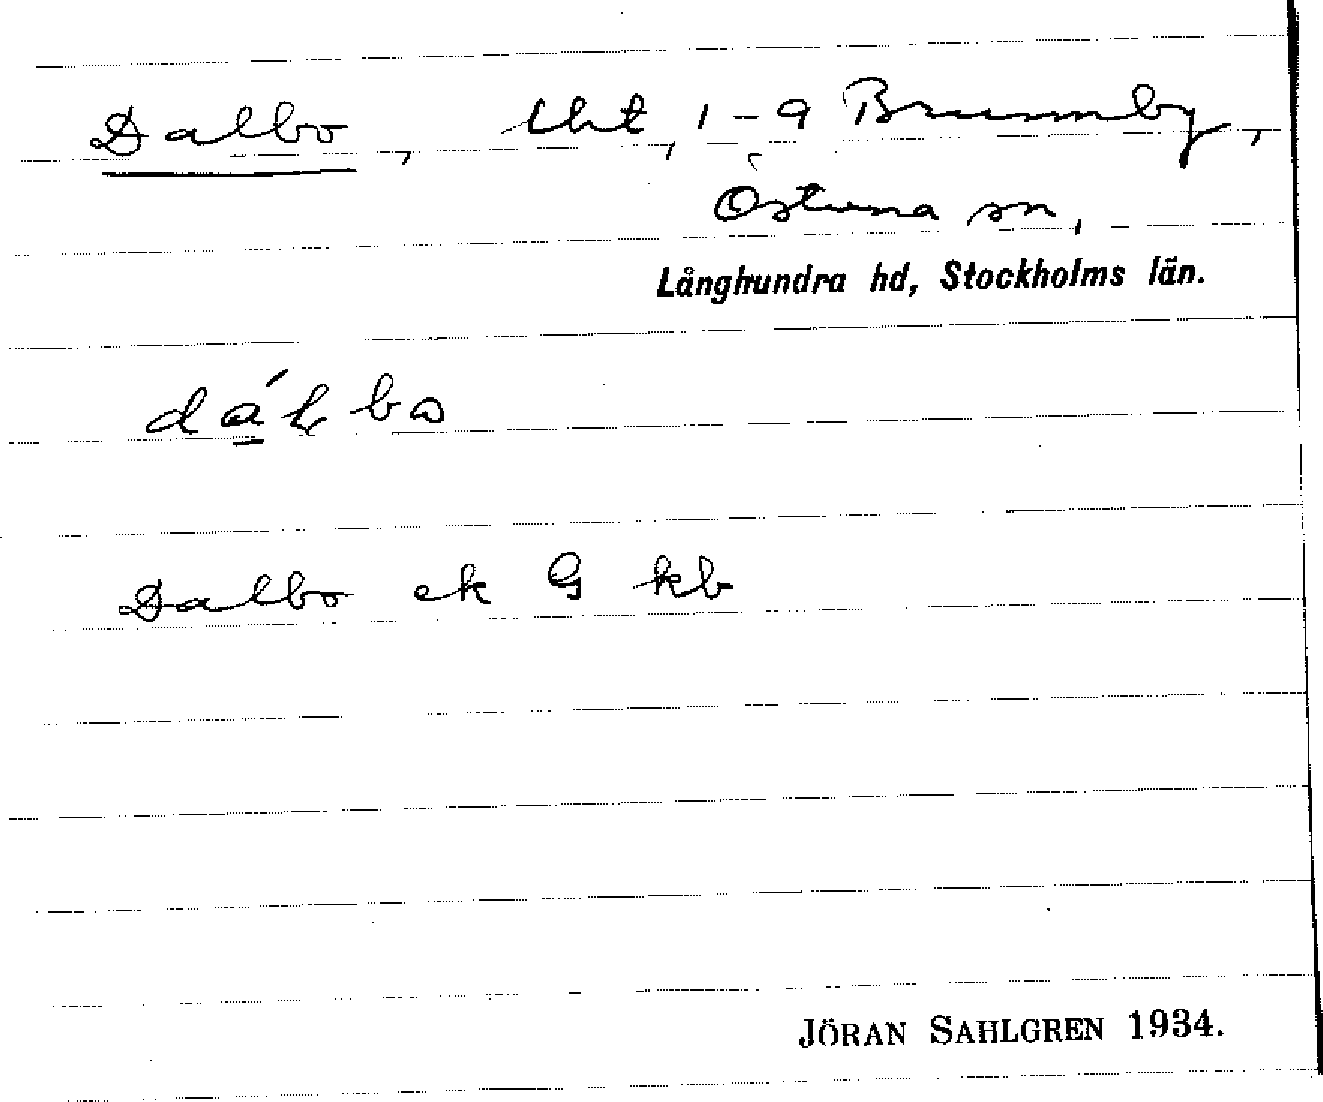 Dalbo, lht, 1-9 Brunnby,
Östuna sn,
Långhundra hd, Stockholms län.
Dalbo ek G kb
JÖRAN SAHLGREN 1934.